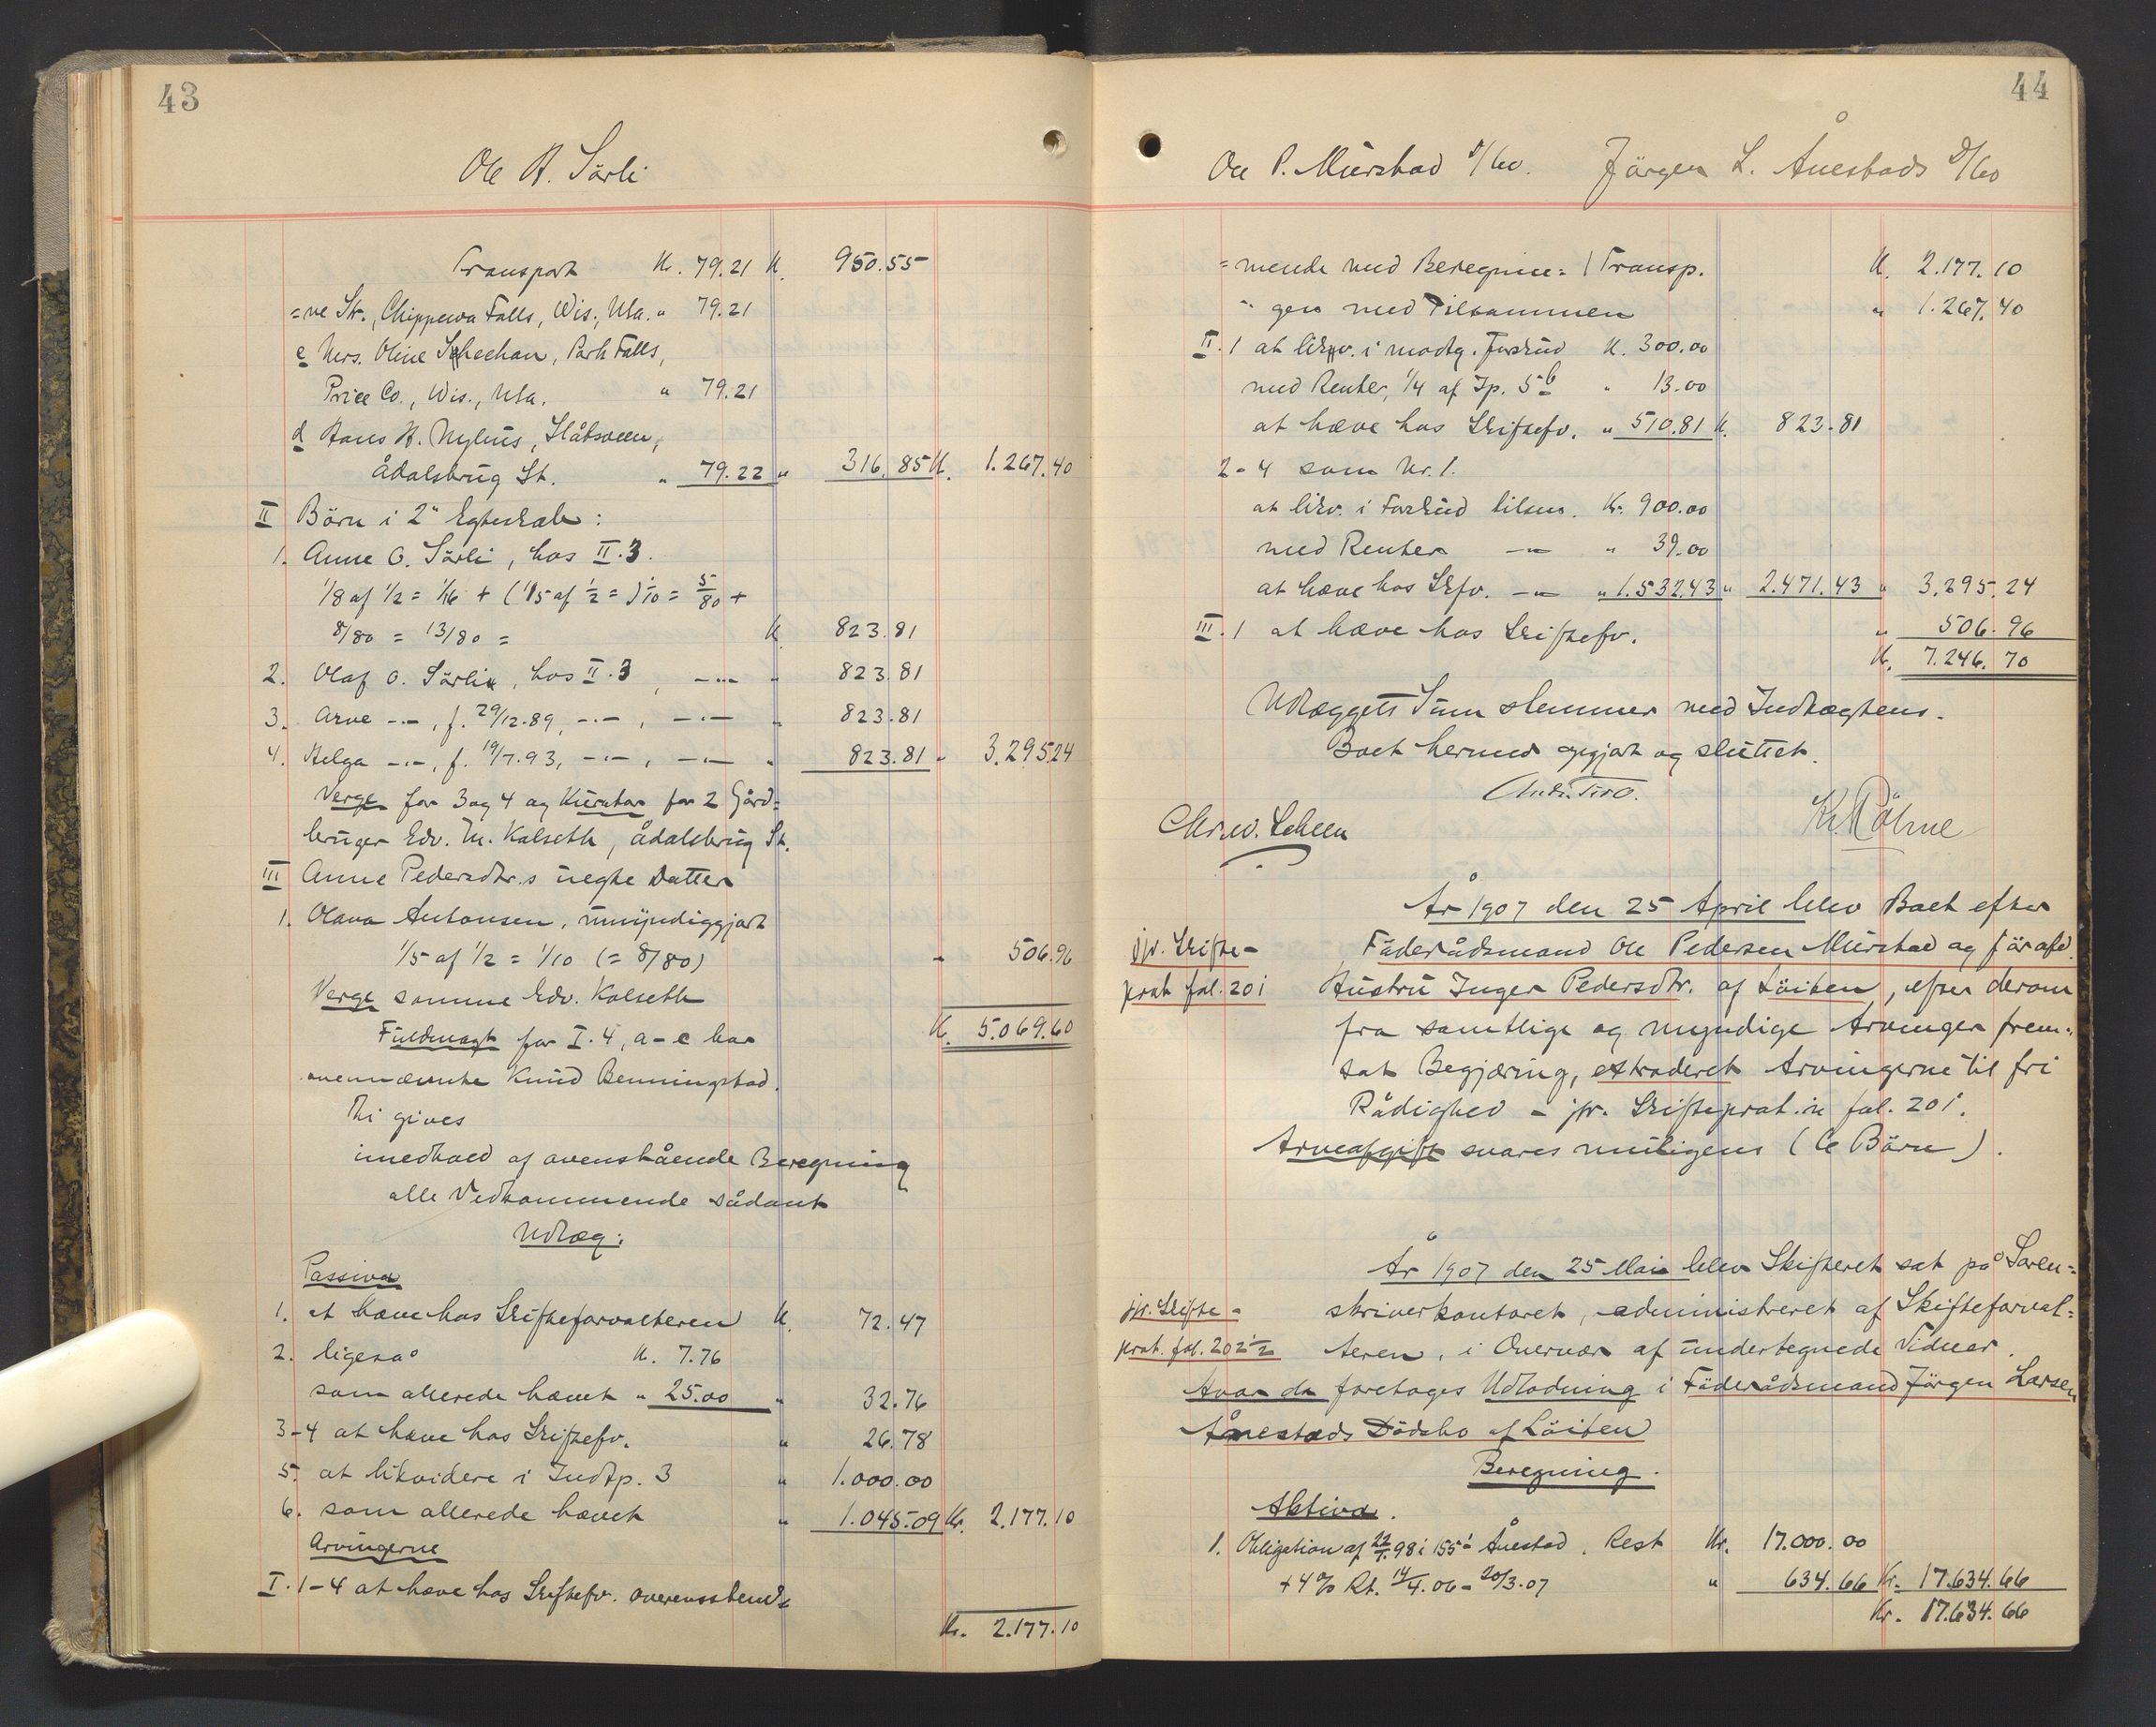 43
Ole A. Sörli
Transport Kr. 79.21 Kr. 950.55
=ne Str., Chippewa Falls, Wis., Usa. " 79.21
c Mrs. Oline Scheehan, Park Falls,
Price Co., Wis., Usa. " 79.21
d Hans H. Nyhus, Slåtsveen,
Ådalsbrug St. " 79.22 " 316.85 Kr. 1.267.40
II Börn i 2" Egteskab:
1. Anne O. Sörli, hos II.3.
1/8 af 1/2 = 1/16 + (1/5 af 1/2 =) 1/10 = 5/80 +
8/80 = 13/80 = Kr. 823.81
2. Olaf O. Sörli, hos II.3, -"- " 823.81
3. Arve -"-, f. 29/12.89, -"-, -"- " 823.81
4. Helga -"-, f. 19/7.93, -"-, -"- " 823.81 " 3.295.24
Verge for 3 og 4 og Kurator for 2 Gård=
bruger Edv. M. Kolseth, Ådalsbrug St.
III Anne Pedersdtr.s uegte Datter
1. Olava Antonsen, umyndiggjort
1/5 af 1/2 = 1/10 (= 8/80) " 506.96
Verge samme Edv. Kolseth
Kr. 5.069.60
Fuldmagt for I.4, a-c har
ovennævnte Knud Benningstad.
Thi gives
imedhold af ovenstående Beregning
alle Vedkommende sådant
Udlæg:
Passiva
1. at hæve hos Skifteforvalteren Kr. 72.47
2. ligeså Kr. 7.76
som allerede hævet " 25.00 " 32.76
3-4 at hæve hos Skiftefv. " 26.78
5. at likvidere i Indtp. 3 " 1.000.00
6. som allerede hævet " 1.045.09 Kr. 2.177.10
Arvingerne
I. 1-4 at hæve hos Skiftefv. overensstem=
Kr. 2.177.10
44
Ole P. Mürstad D/bo. Jörgen L. Ånestads D/bo
=mende med Beregnin= | Transp. Kr. 2.177.10
" gen med tilsammen " 1.267.40
II. 1 at likv. i modtg. Forskud Kr. 300.00
med Renter, 1/4 af Ip. 5 b " 13.00
at hæve hos Skiftefv. " 510.81 Kr. 823.81
2-4 som Nr. 1.
at likv. i Forskud tilsm. Kr. 900.00
med Renter -"- " 39.00
at hæve hos Skfv. -"- " 1.532.43 " 2.471.43 " 3.295.24
III. 1 at hæve hos Skiftefv. " 506.96
Kr. 7.246.70
Udlæggets Sum stemmer med Indtægtens.
Boet hermed opgjort og sluttet.
Chr. W. Scheen
År 1907 den 25 April blev Boet efter
jfr. Skifte- Föderådsmand Ole Pedersen Mürstad og föravd.
prot fol. 201 Hustru Inger Pedersdtr. af Löiten, efter derom
fra samtlige og myndige Arvinger frem=
sat Begjæring, extraderet Arvingerne til fri
Rådighed - jfr. Skifteprot.in fol. 201.
Arveafgift svares muligens (6 Börn).
År 1907 den 25 Mai blev Skifteret sat på Soren=
jfr. Skifte- skriverkontoret, administreret af Skifteforval=
prot. fol. 202 1/2 teren, i Overvær af undertegnede Vidner.
Hvor da foretoges Udlodning i Föderådsmand Jörgen Larsen
Ånestads Dödsbo af Löiten
Beregning.
Aktiva.
1. Obligation af 22/7.98 i 155 1 Ånestad. Rest Kr. 17.000.00
+ 4% Rt. 14/4.06 - 20/3.07 " 634.66 Kr. 17.634.66
Kr. 17.634.66